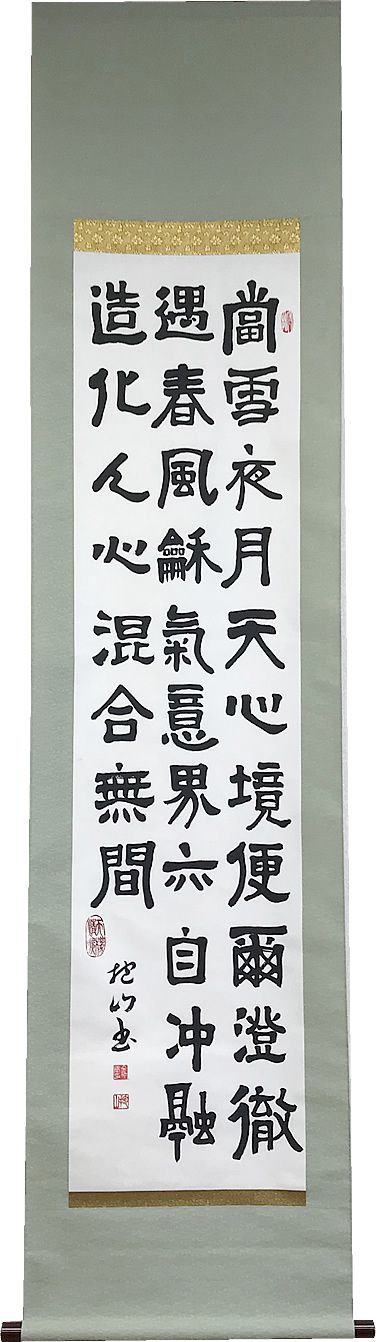 當雪夜月天心境便爾澄徹
遇春風龢氣意界亦自沖融
造化人心混合無間
山書